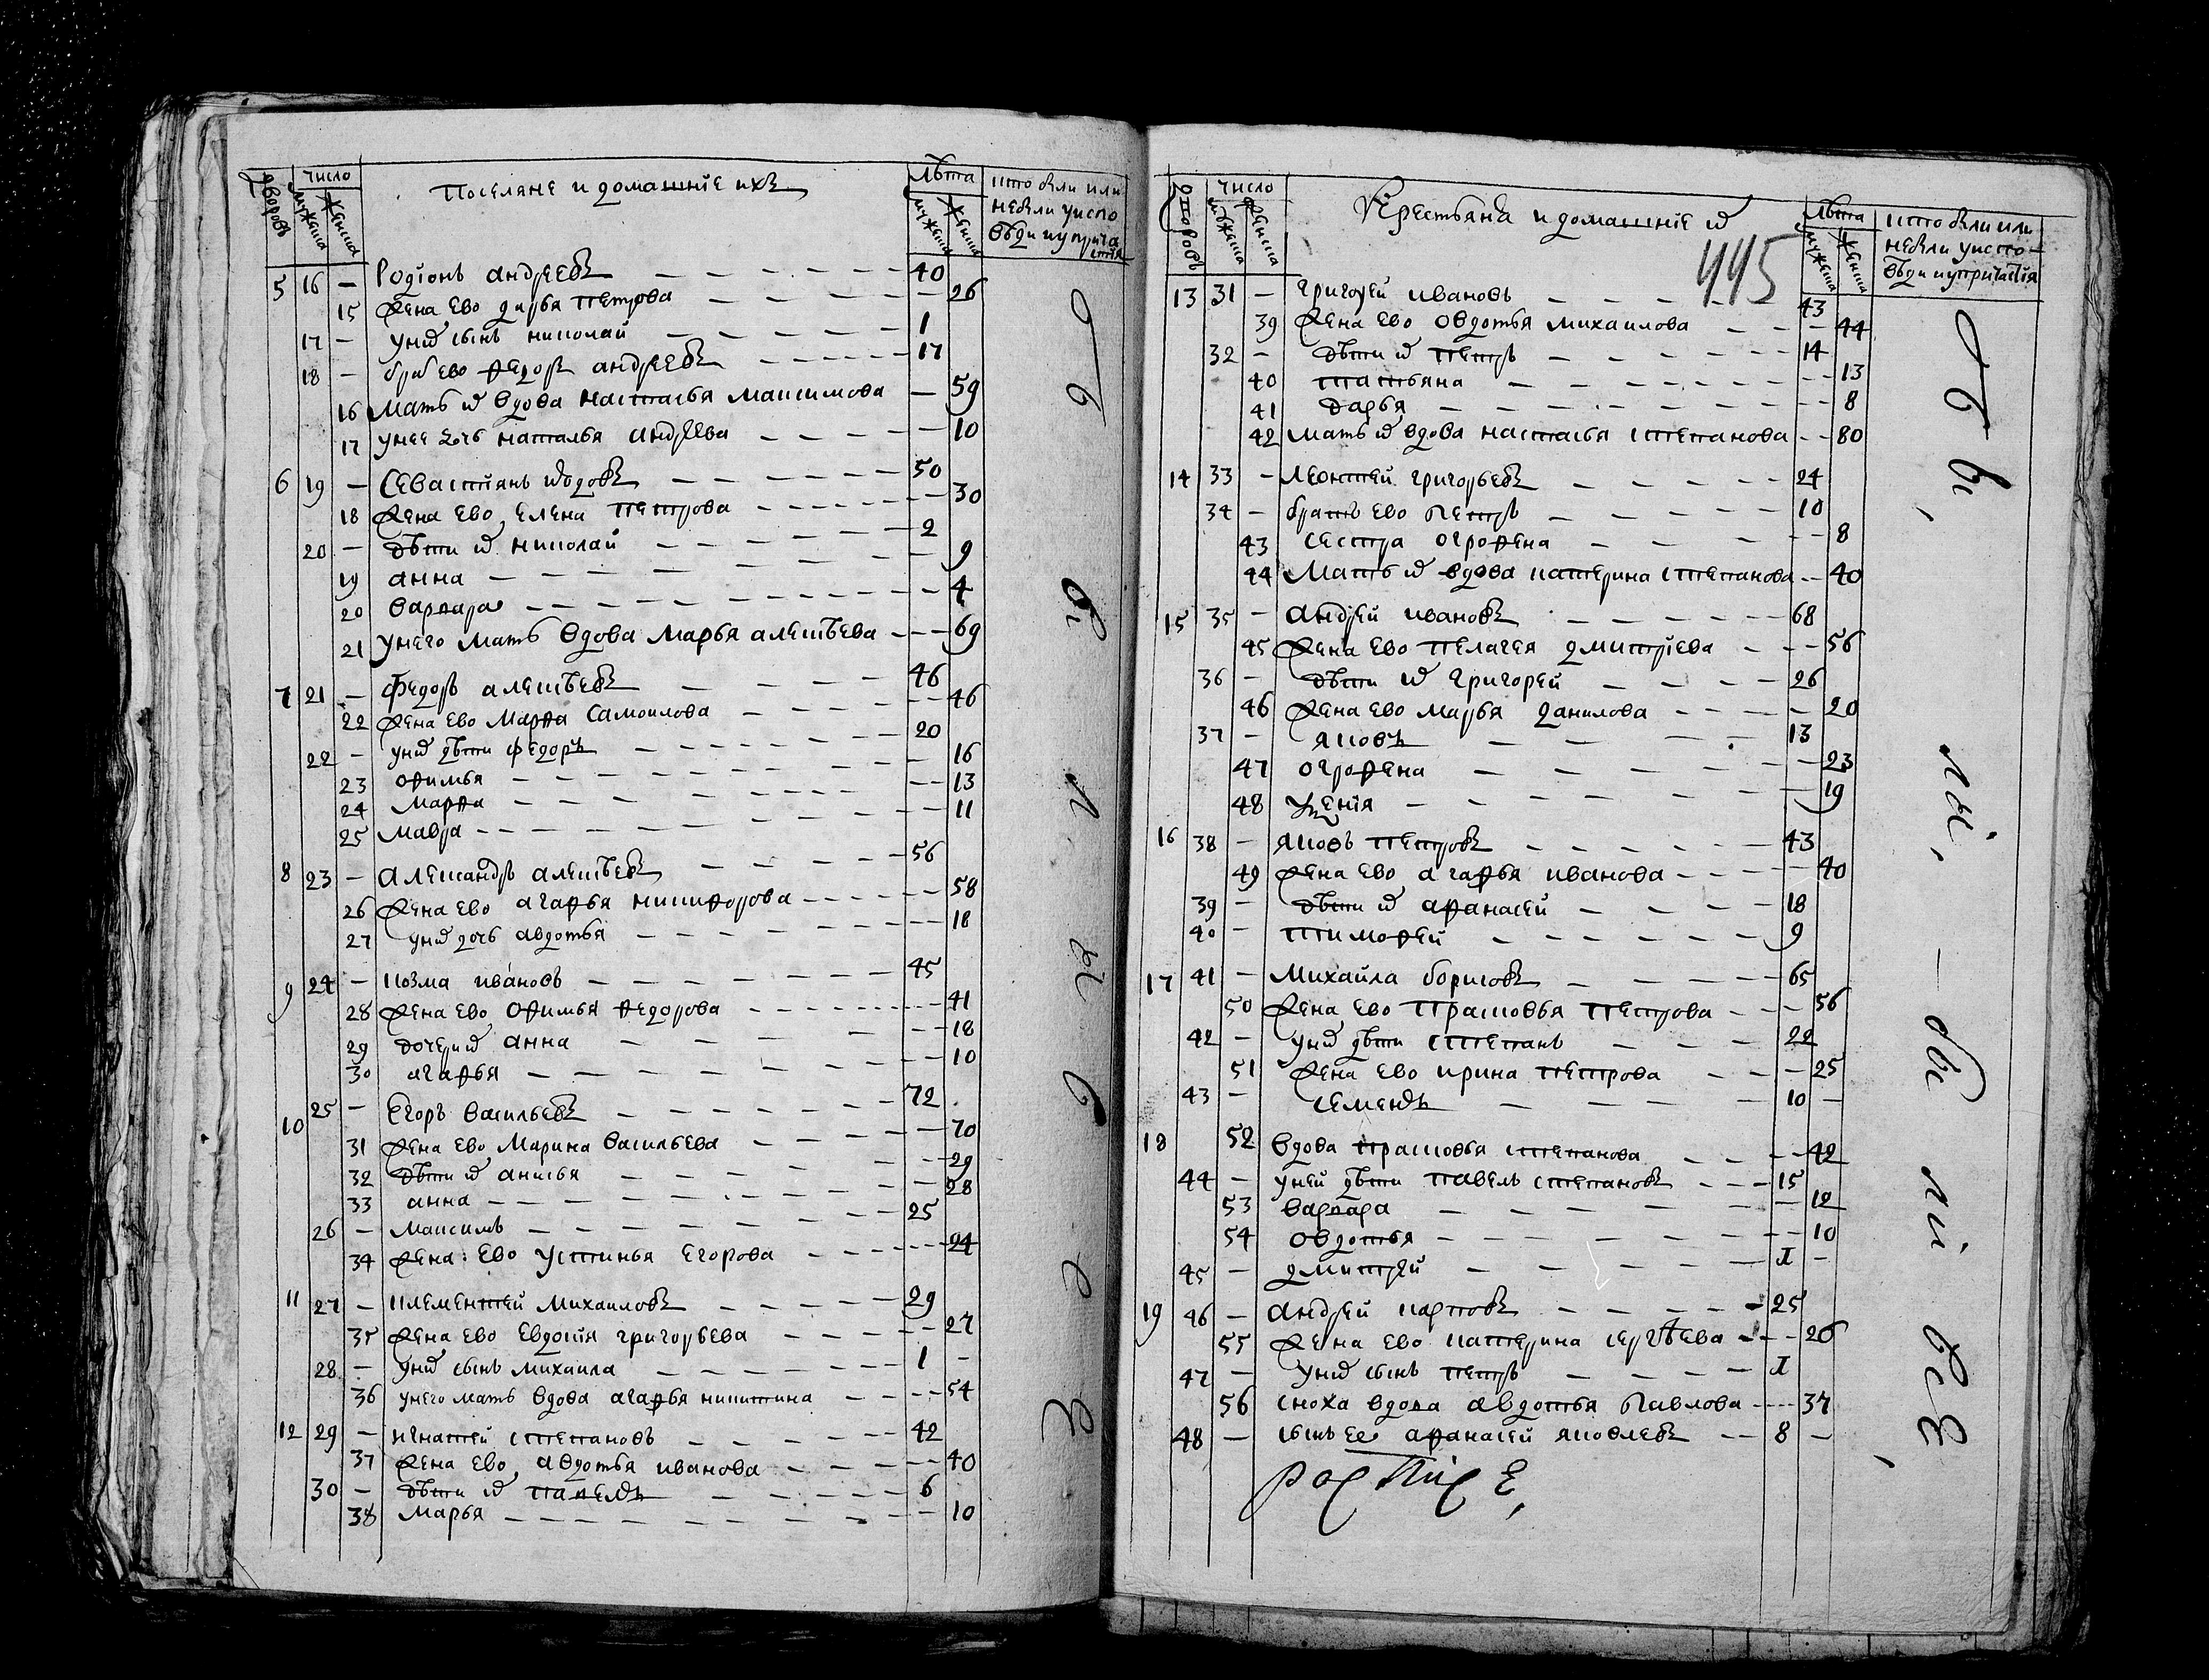 дворовъ число мужеска женска Поселяне и домашние ихъ лѣта мужеска женска кто были или небыли уиспо вѣди иуприча стия
5 16 — Родионъ андреевъ — 40
15 жена ево дарья петрова — 26
17 — уних сынъ николай — 1
18 — брат ево федоръ андреевъ — 17
16 мать их вдова настасья максимова — 59
17 унее дочь наталья андреева — 10
6 19 — Севастиянъ — 50
18 жена ево елена петрова — 30
20 — дѣти их николай — 2
19 анна — 9
20 варвара — 4
21 унего мать вдова марья алексѣева — 69
7 21 — Федоръ алексѣевъ — 46
22 жена ево марфа самоилова — 46
22 — уних дѣти федоръ — 20
23 офимья — 16
24 марфа — 13
25 мавра — 11
8 23 — александръ алексѣевъ — 56
26 жена ево агафья никифорова — 58
27 уних дочь авдотья — 18
9 24 — козма ивановъ — 45
28 жена ево офимья федорова — 41
29 дочери их анна — 18
30 агафья — 10
10 25 — Егоръ васильевъ — 72
31 жена ево марина васильева — 70
32 дѣти их анисья — 29
33 анна — 28
26 — максимъ — 25
34 жена ево устинья егорова — 24
11 27 — клементей михаиловъ — 29
35 жена ево евдокия григорьева — 27
28 — уних сынъ михаила — 1 —
36 унего мать вдова агафья никитина — 54
12 29 — игнатей степановъ — 42
37 жена ево авдотья иванова — 40
30 — дѣти их павелъ — 6
38 марья — 10
дворовъ число мужеска женска Крестьяна и домашние их лѣта мужеска женска кто были или небыли уиспо вѣди иупричастия
445
13 31 — григорей ивановъ — 43
39 жена ево овдотья михаилова — 44
32 — дѣти их петръ — 14
40 татьяна — 13
41 дарья — 8
42 мать их вдова настасья степанова — 80
14 33 — леонтей григорьевъ — 24
34 — братъ ево петръ — 10
43 сестра огрофена — 8
44 мать их вдова катерина степанова — 40
15 35 — андрей ивановъ — 68
45 жена ево пелагея дмитриева — 56
36 — дѣти их григорей — 26
46 жена ево марья данилова — 20
37 — яковъ — 13
47 огрофена — 23
48 — 19
16 38 — яковъ петровъ — 43
49 жена ево агафья иванова — 40
39 — дѣти их афанасей — 18
40 — тимофей — 9
17 41 — михаила борисовъ — 65
50 жена ево прасковья петрова — 56
42 — уних дѣти степанъ — 22
51 жена ево ирина петрова — 25
43 — семенъ — 10 —
18 52 вдова прасковья степанова — 42
44 — уней дѣти павелъ степановъ — 15
53 варвара — 12
54 овдотья — 10
45 — дмитрей — 1 —
19 46 — андрей карповъ — 25
55 жена ево катерина сергѣева — 26
47 — уних сынъ петръ — 1
56 сноха вдова авдотья павлова — 37
48 — сынъ ее афанасей яковлевъ — 8 —